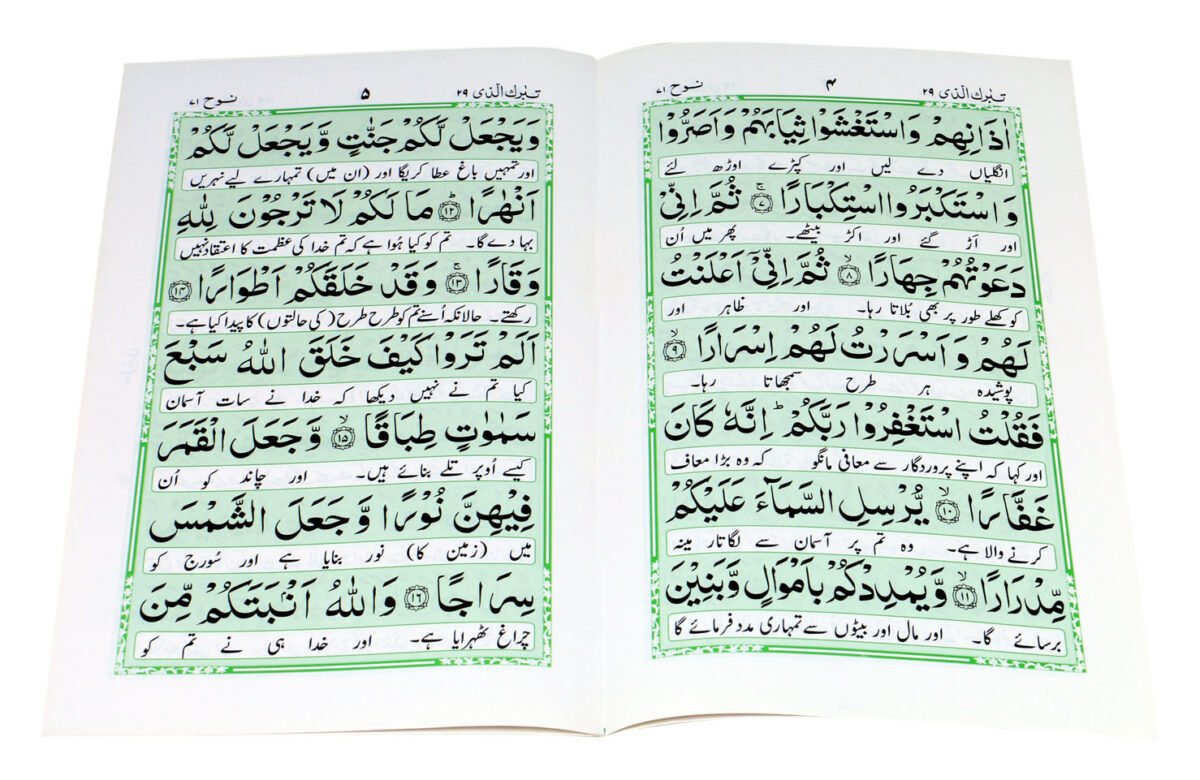 تبٰرك الّذى ٢٩ ۴ نوح ٧١
اٰذَانِهِمْ وَاسْتَغْشَوْا ثِيَابَهُمْ وَاَصَرُّوْا
انگلیاں دے لیں اور کپڑے اوڑھ لئے
وَاسْتَكْبَرُوا اسْتِكْبَارًا ۷ ثُمَّ اِنِّىْ
اور اَڑ گئے اور اکڑ بیٹھے۔ پھر میں اُن
دَعَوْتُهُمْ جِهَارًا ۸ ثُمَّ اِنِّىْٓ اَعْلَنْتُ
کو کھلے طور پر بھی بُلاتا رہا۔ اور ظاہر اور
لَهُمْ وَاَسْرَرْتُ لَهُمْ اِسْرَارًا ۹
پوشیدہ ہر طرح سمجھاتا رہا۔
فَقُلْتُ اسْتَغْفِرُوْا رَبَّكُمْ ؕ اِنَّهٗ كَانَ
اور کہا کہ اپنے پروردگار سے معافی مانگو کہ وہ بڑا معاف
غَفَّارًا ۱۰ يُّرْسِلِ السَّمَآءَ عَلَيْكُمْ
کرنے والا ہے۔ وہ تم پر آسمان سے لگاتار مینہ
مِّدْرَارًا ۱۱ وَّيُمْدِدْكُمْ بِاَمْوَالٍ وَّبَنِيْنَ
برسائے گا۔ اور مال اور بیٹوں سے تمہاری مدد فرمائے گا
تبٰرك الّذى ٢٩ ۵ نوح ٧١
وَيَجْعَلْ لَّكُمْ جَنّٰتٍ وَّيَجْعَلْ لَّكُمْ
اور تمہیں باغ عطا کریگا اور (ان میں) تمہارے لیے نہریں
اَنْهٰرًا ۱۲ مَا لَكُمْ لَا تَرْجُوْنَ لِلّٰهِ
بہا دے گا۔ تم کو کیا ہُوا ہے کہ تم خدا کی عظمت کا اعتقاد نہیں
وَقَارًا ۱۳ وَقَدْ خَلَقَكُمْ اَطْوَارًا ۱۴
رکھتے۔ حالانکہ اُسنے تم کو طرح طرح (کی حالتوں) کا پیدا کیا ہے۔
اَلَمْ تَرَوْا كَيْفَ خَلَقَ اللّٰهُ سَبْعَ
کیا تم نے نہیں دیکھا کہ خدا نے سات آسمان
سَمٰوٰتٍ طِبَاقًا ۱۵ وَّجَعَلَ الْقَمَرَ
کیسے اُوپر تلے بنائے ہیں۔ اور چاند کو اُن
فِيْهِنَّ نُوْرًا وَّجَعَلَ الشَّمْسَ
میں (زمین کا) نور بنایا ہے اور سُورج کو
سِرَاجًا ۱۶ وَاللّٰهُ اَنْۢبَتَكُمْ مِّنَ
چراغ ٹھہرایا ہے۔ اور خدا ہی نے تم کو